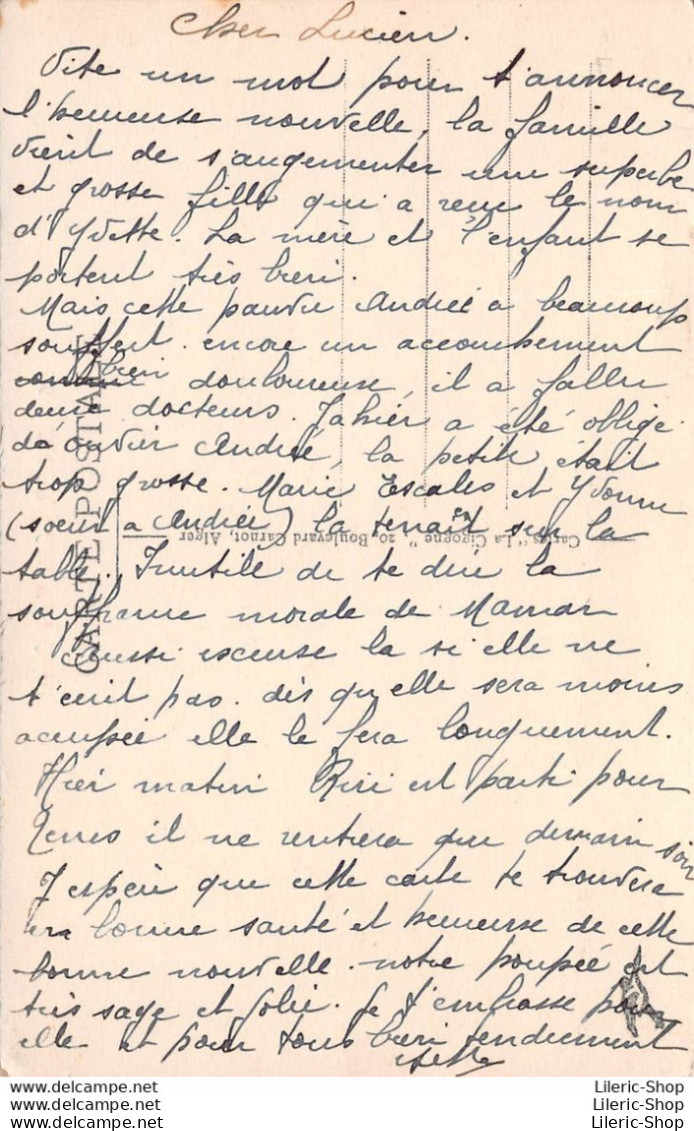 Cher Lucien.
Vite un mot pour t'annoncer
l'heureuse nouvelle, la famille
vient de s'augmenter une superbe
et grosse fille qui a reçu le nom
d'Yvette. La mère et l'enfant se
portent très bien.
Mais cette pauvre Andrée a beaucoup
souffert. encore un accouchement
bien douloureuse, il a fallu
deux docteurs. Jahier a été obligé
d'ouvrir Andrée, la petite était
trop grosse. Marie Escales et Yvonne
(soeur a Andrée) la tenait sur la
table. Inutile de te dire la
souffrance morale de Maman
aussi excuse la si elle ne
t'écrit pas. dès qu'elle sera moins
occupée elle le fera longuement.
Hier matin Riri est parti pour
Ténès il ne rentrera que demain soir
J'espère que cette carte te trouvera
en bonne santé et heureuse de cette
bonne nouvelle. notre poupée est
très sage et jolie. Je t'embrasse pour
elle et pour tous bien tendrement
CARTE POSTALE
Cartes "La Cigogne", 20, Boulevard Carnot, Alger
Lileric-Shop
Lileric-Shop
Lileric-Shop